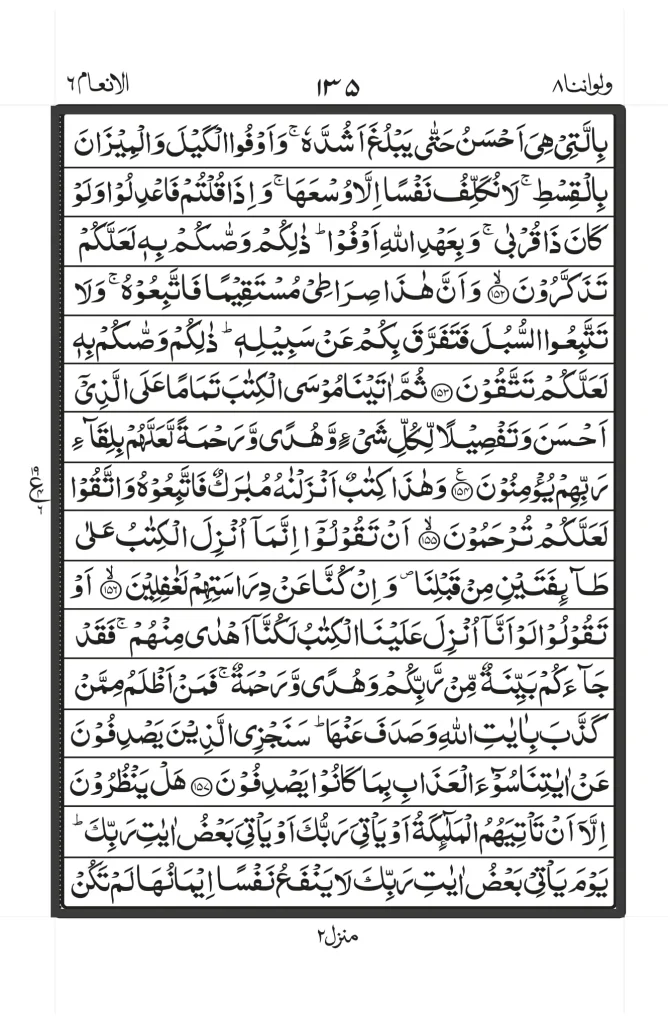 ولواننا ۸ ۱۳۵ الانعام ۶
بِالَّتِیْ هِیَ اَحْسَنُ حَتّٰی یَبْلُغَ اَشُدَّهٗ ۚ وَاَوْفُوا الْكَیْلَ وَالْمِیْزَانَ
بِالْقِسْطِ ۚ لَا نُكَلِّفُ نَفْسًا اِلَّا وُسْعَهَا ۚ وَاِذَا قُلْتُمْ فَاعْدِلُوْا وَلَوْ
كَانَ ذَا قُرْبٰی ۚ وَبِعَهْدِ اللّٰهِ اَوْفُوْا ؕ ذٰلِكُمْ وَصّٰىكُمْ بِهٖ لَعَلَّكُمْ
تَذَكَّرُوْنَ ۙ﴿۱۵۲﴾ وَاَنَّ هٰذَا صِرَاطِیْ مُسْتَقِیْمًا فَاتَّبِعُوْهُ ۚ وَلَا
تَتَّبِعُوا السُّبُلَ فَتَفَرَّقَ بِكُمْ عَنْ سَبِیْلِهٖ ؕ ذٰلِكُمْ وَصّٰىكُمْ بِهٖ
لَعَلَّكُمْ تَتَّقُوْنَ ﴿۱۵۳﴾ ثُمَّ اٰتَیْنَا مُوْسَی الْكِتٰبَ تَمَامًا عَلَی الَّذِیْۤ
اَحْسَنَ وَتَفْصِیْلًا لِّكُلِّ شَیْءٍ وَّهُدًی وَّرَحْمَةً لَّعَلَّهُمْ بِلِقَآءِ
رَبِّهِمْ یُؤْمِنُوْنَ ﴿۱۵۴﴾ۧ وَهٰذَا كِتٰبٌ اَنْزَلْنٰهُ مُبٰرَكٌ فَاتَّبِعُوْهُ وَاتَّقُوْا
لَعَلَّكُمْ تُرْحَمُوْنَ ۙ﴿۱۵۵﴾ اَنْ تَقُوْلُوْۤا اِنَّمَاۤ اُنْزِلَ الْكِتٰبُ عَلٰی
طَآىِٕفَتَیْنِ مِنْ قَبْلِنَا ۪ وَاِنْ كُنَّا عَنْ دِرَاسَتِهِمْ لَغٰفِلِیْنَ ۙ﴿۱۵۶﴾ اَوْ
تَقُوْلُوْا لَوْ اَنَّاۤ اُنْزِلَ عَلَیْنَا الْكِتٰبُ لَكُنَّاۤ اَهْدٰی مِنْهُمْ ۚ فَقَدْ
جَآءَكُمْ بَیِّنَةٌ مِّنْ رَّبِّكُمْ وَهُدًی وَّرَحْمَةٌ ۚ فَمَنْ اَظْلَمُ مِمَّنْ
كَذَّبَ بِاٰیٰتِ اللّٰهِ وَصَدَفَ عَنْهَا ؕ سَنَجْزِی الَّذِیْنَ یَصْدِفُوْنَ
عَنْ اٰیٰتِنَا سُوْٓءَ الْعَذَابِ بِمَا كَانُوْا یَصْدِفُوْنَ ﴿۱۵۷﴾ هَلْ یَنْظُرُوْنَ
اِلَّاۤ اَنْ تَاْتِیَهُمُ الْمَلٰٓىِٕكَةُ اَوْ یَاْتِیَ رَبُّكَ اَوْ یَاْتِیَ بَعْضُ اٰیٰتِ رَبِّكَ ؕ
یَوْمَ یَاْتِیْ بَعْضُ اٰیٰتِ رَبِّكَ لَا یَنْفَعُ نَفْسًا اِیْمَانُهَا لَمْ تَكُنْ
منزل ۲